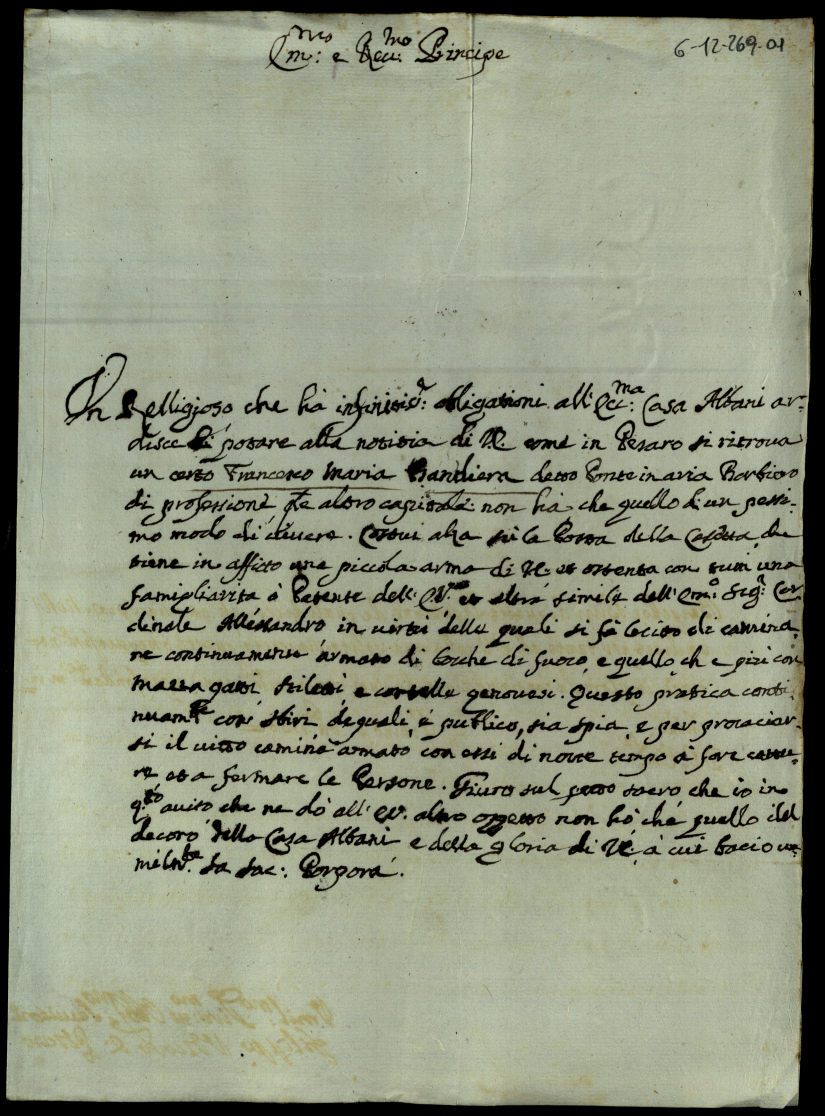 Em:mo e Rev:mo Principe
6-12-269-01
Un Relligioso che hà infinitis:e obligationi all'Ecc:ma Casa Albani ar-
disce di portare alla notitia di VE come in Pesaro si ritroua
un certo Francesco Maria Bandiera detto Ponte in aria Barbiero
di professione, che altro capitale non hà che quello di un pessi-
mo modo di viuere. Costui alza sù la Porta della che
tiene in affitto una piccola arma di VE et ostenta con tutti una
famigliarità ò Patente dell' et altra simile dell'Em:o Sig:r Car-
dinale Alessandro in uirtù delle quali si fà lecito di camina-
re continuamente armato di bocche di fuoco, e quello ch'e più con
mazza gatti stiletti e cortelle genouesi. Questo pratica conti-
nuam:te con sbiri de quali è publico, sia spia, e per procaciar-
si il uitto camina armato con essi di notte tempo à fare cattu-
re et a fermare le Persone. Giuro sul petto sacro che io in
q:to auiso che ne dò all' altro oggetto non hò che quello del
decoro della Casa Albani e della gloria di VE à cui bacio u-
milm:te la sac: Porpora.